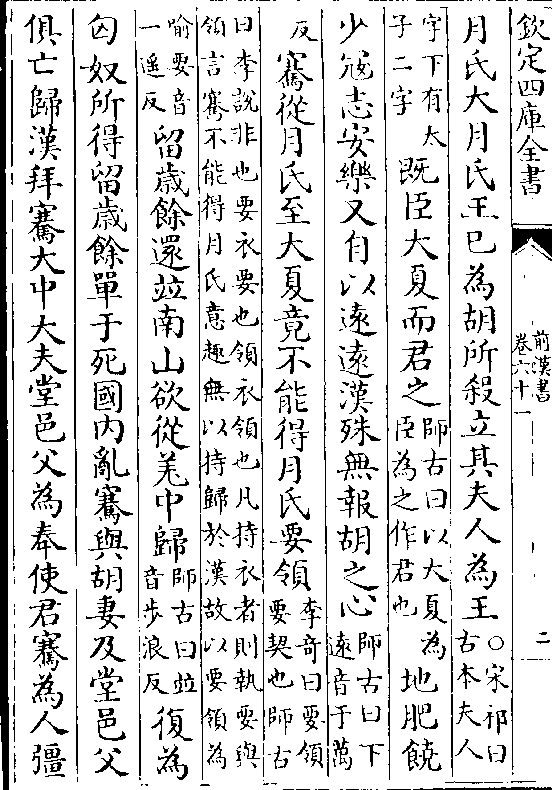 欽定四庫全書
前漢書
卷六十一
二
月氏大月氏王巳為胡所殺立其夫人為王○宋祁曰古本夫人
字下有太子二字既臣大夏而君之師古曰以大夏為臣為之作君也地肥饒
少冦志安樂又自以遠遠漢殊無報胡之心師古曰下遠音于萬
反騫從月氏至大夏竟不能得月氏要領李竒曰要領要契也師古
曰李說非也要衣要也領衣領也凡持衣者則執要與
領言騫不能得月氏意趣無以持歸於漢故以要領為
喻要音一遥反留歳餘還竝南山欲從羌中歸師古曰竝音步浪反復為
匈奴所得留歳餘單于死國内亂騫與胡妻及堂邑父
俱亡歸漢拜騫大中大夫堂邑父為奉使君騫為人彊